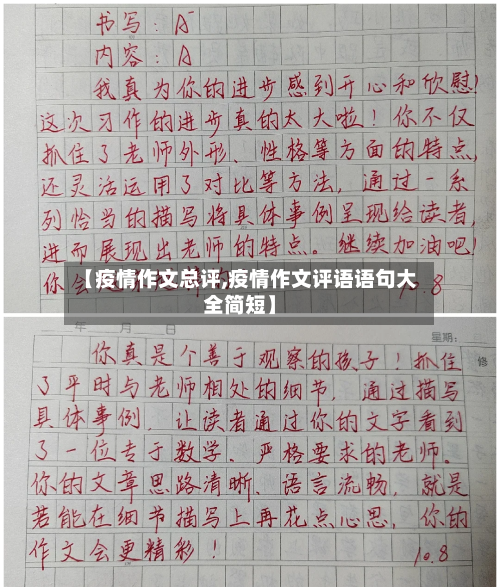 书写：A⁻
内容：A
我真为你的进步感到开心和欣慰！
这次习作的进步真的太大啦！你不仅
抓住了老师外形、性格等方面的特点，
还灵活运用了对比等方法，通过一系
列恰当的描写将具体事例呈现给读者，
进而展现出老师的特点。继续加油吧！
你会
10.8
【疫情作文总评,疫情作文评语语句大
全简短】
年 月 日
星期：
你真是个善于观察的孩子！抓住
修
了平时与老师相处的细节，通过描写
具体事例，让读者通过你的文字看到
了一位专于教学、严格要求的老师。
你的文章思路清晰、语言流畅，就是
若能在细节描写上再花点心思，你的
作文会更精彩！
10.8